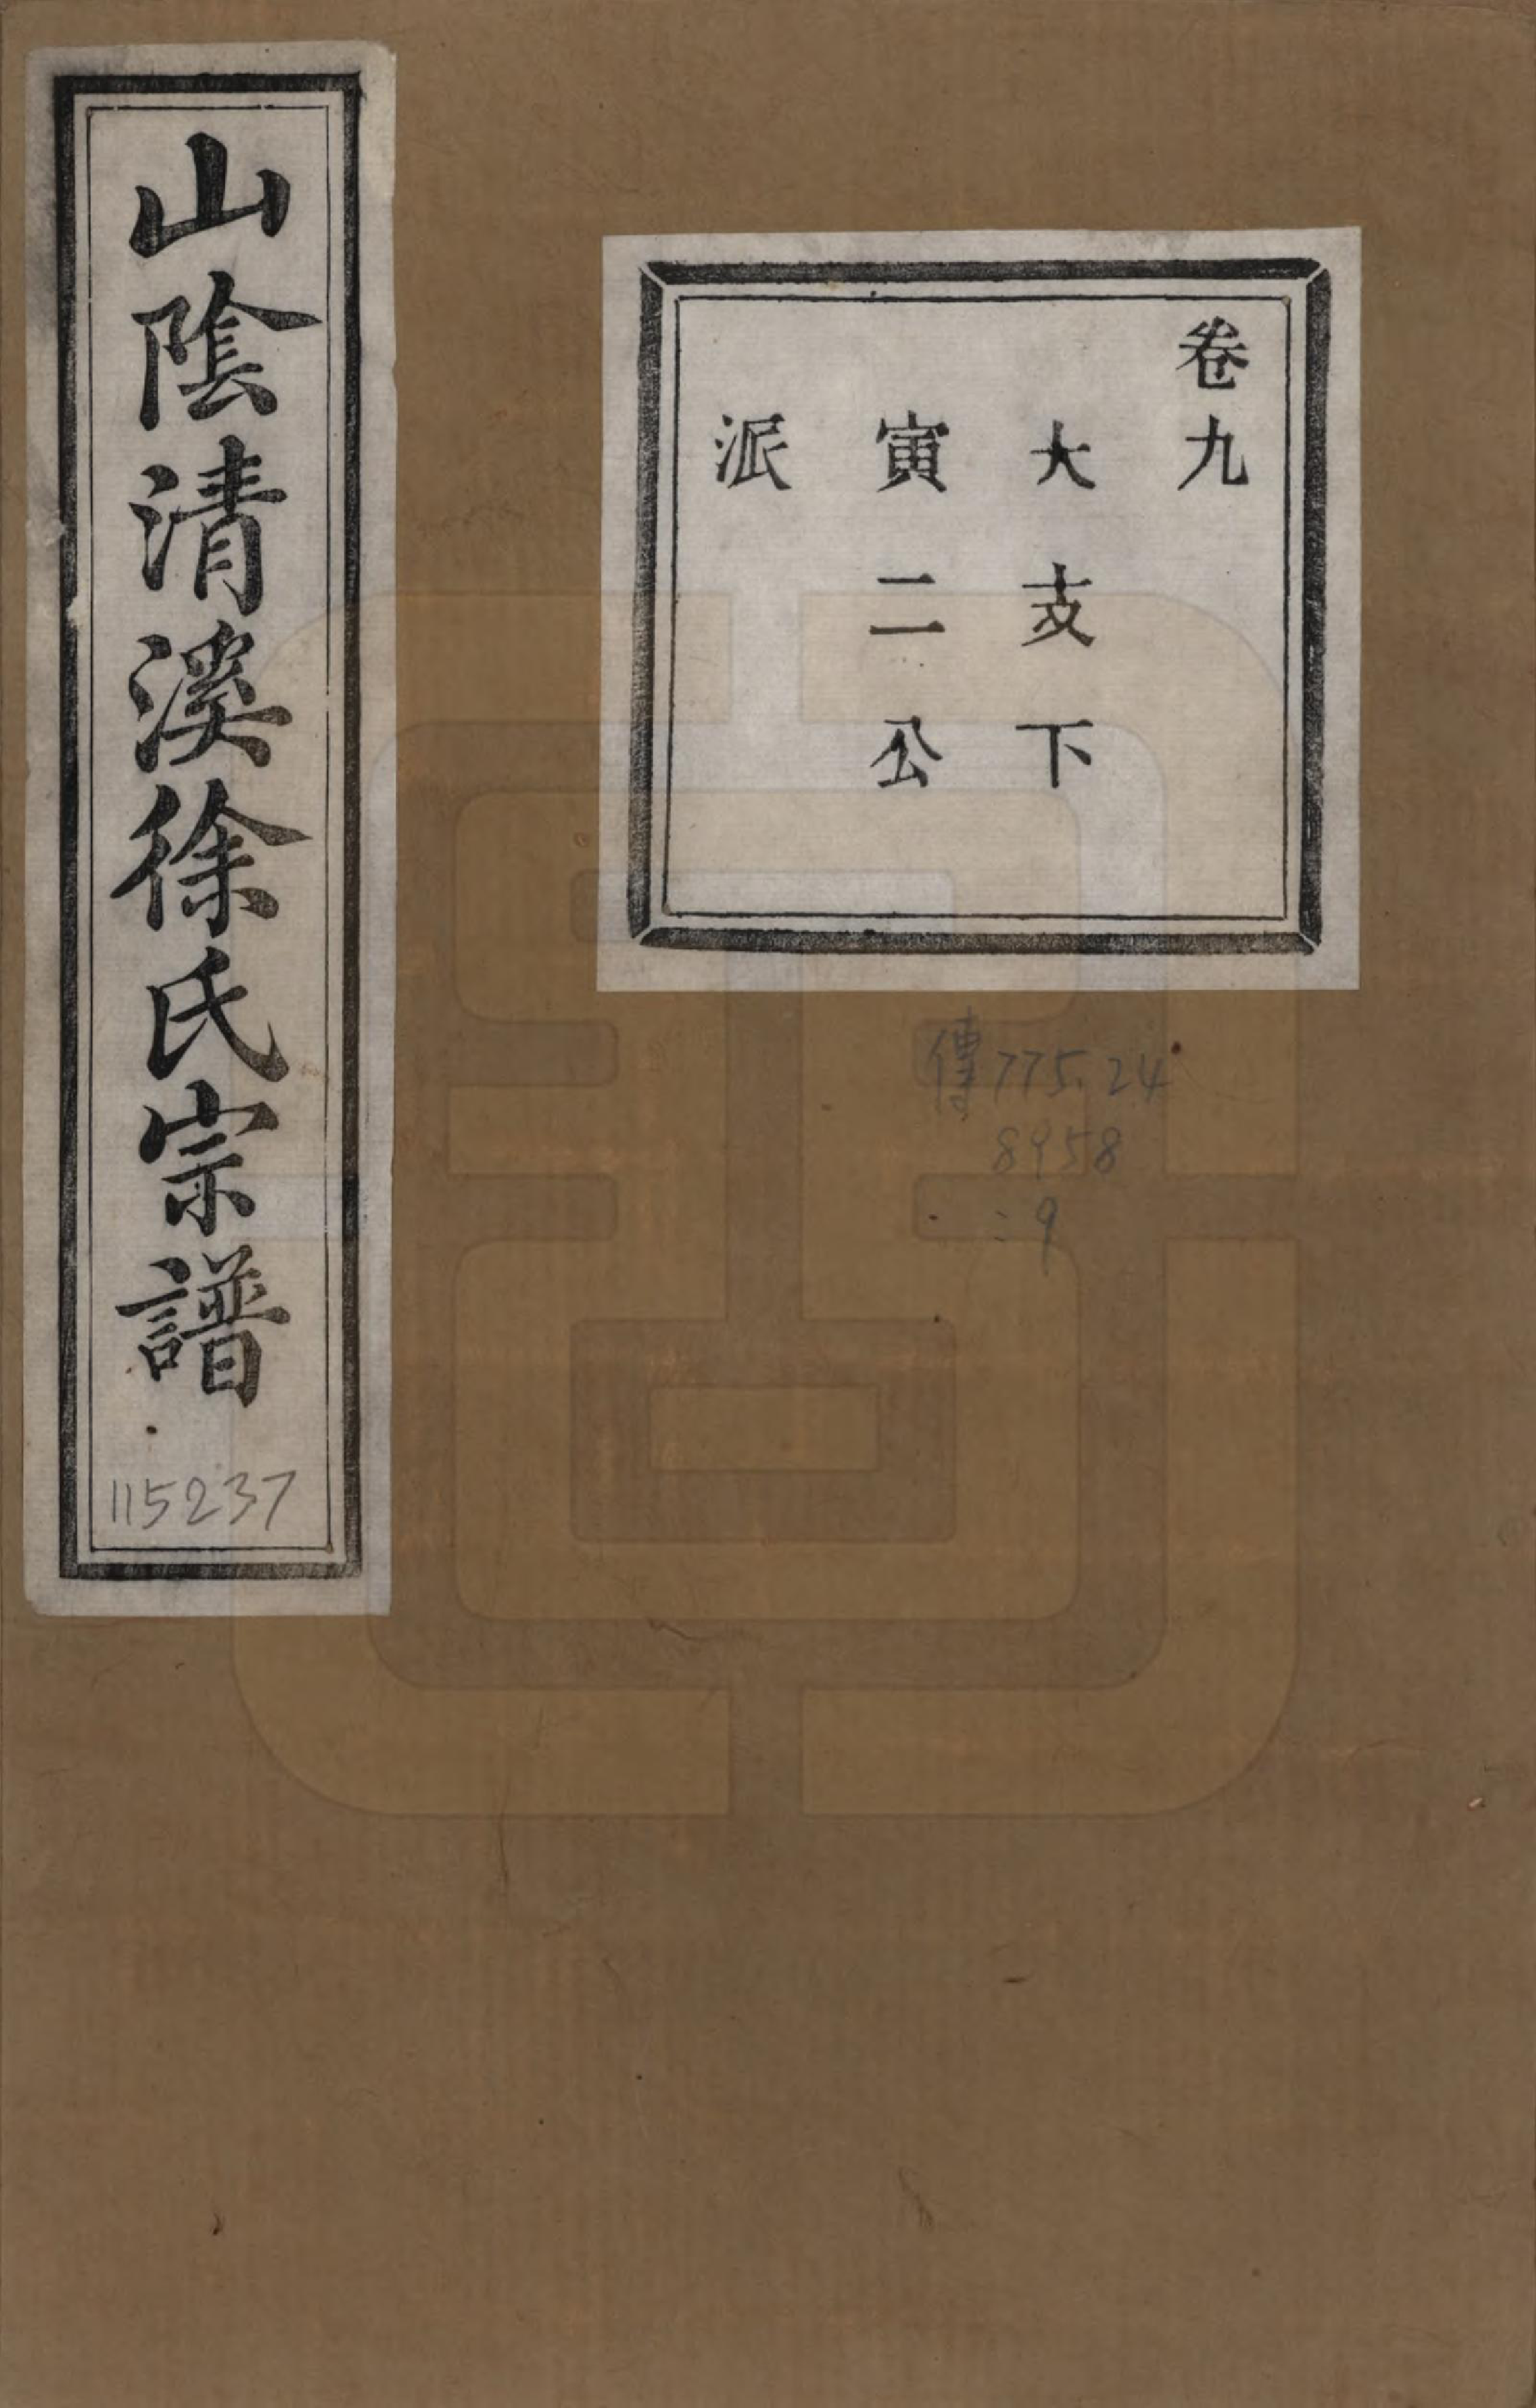 卷九
大支下
寅二公
派
山陰清溪徐氏宗譜
115237
傳775.24
8958
:9